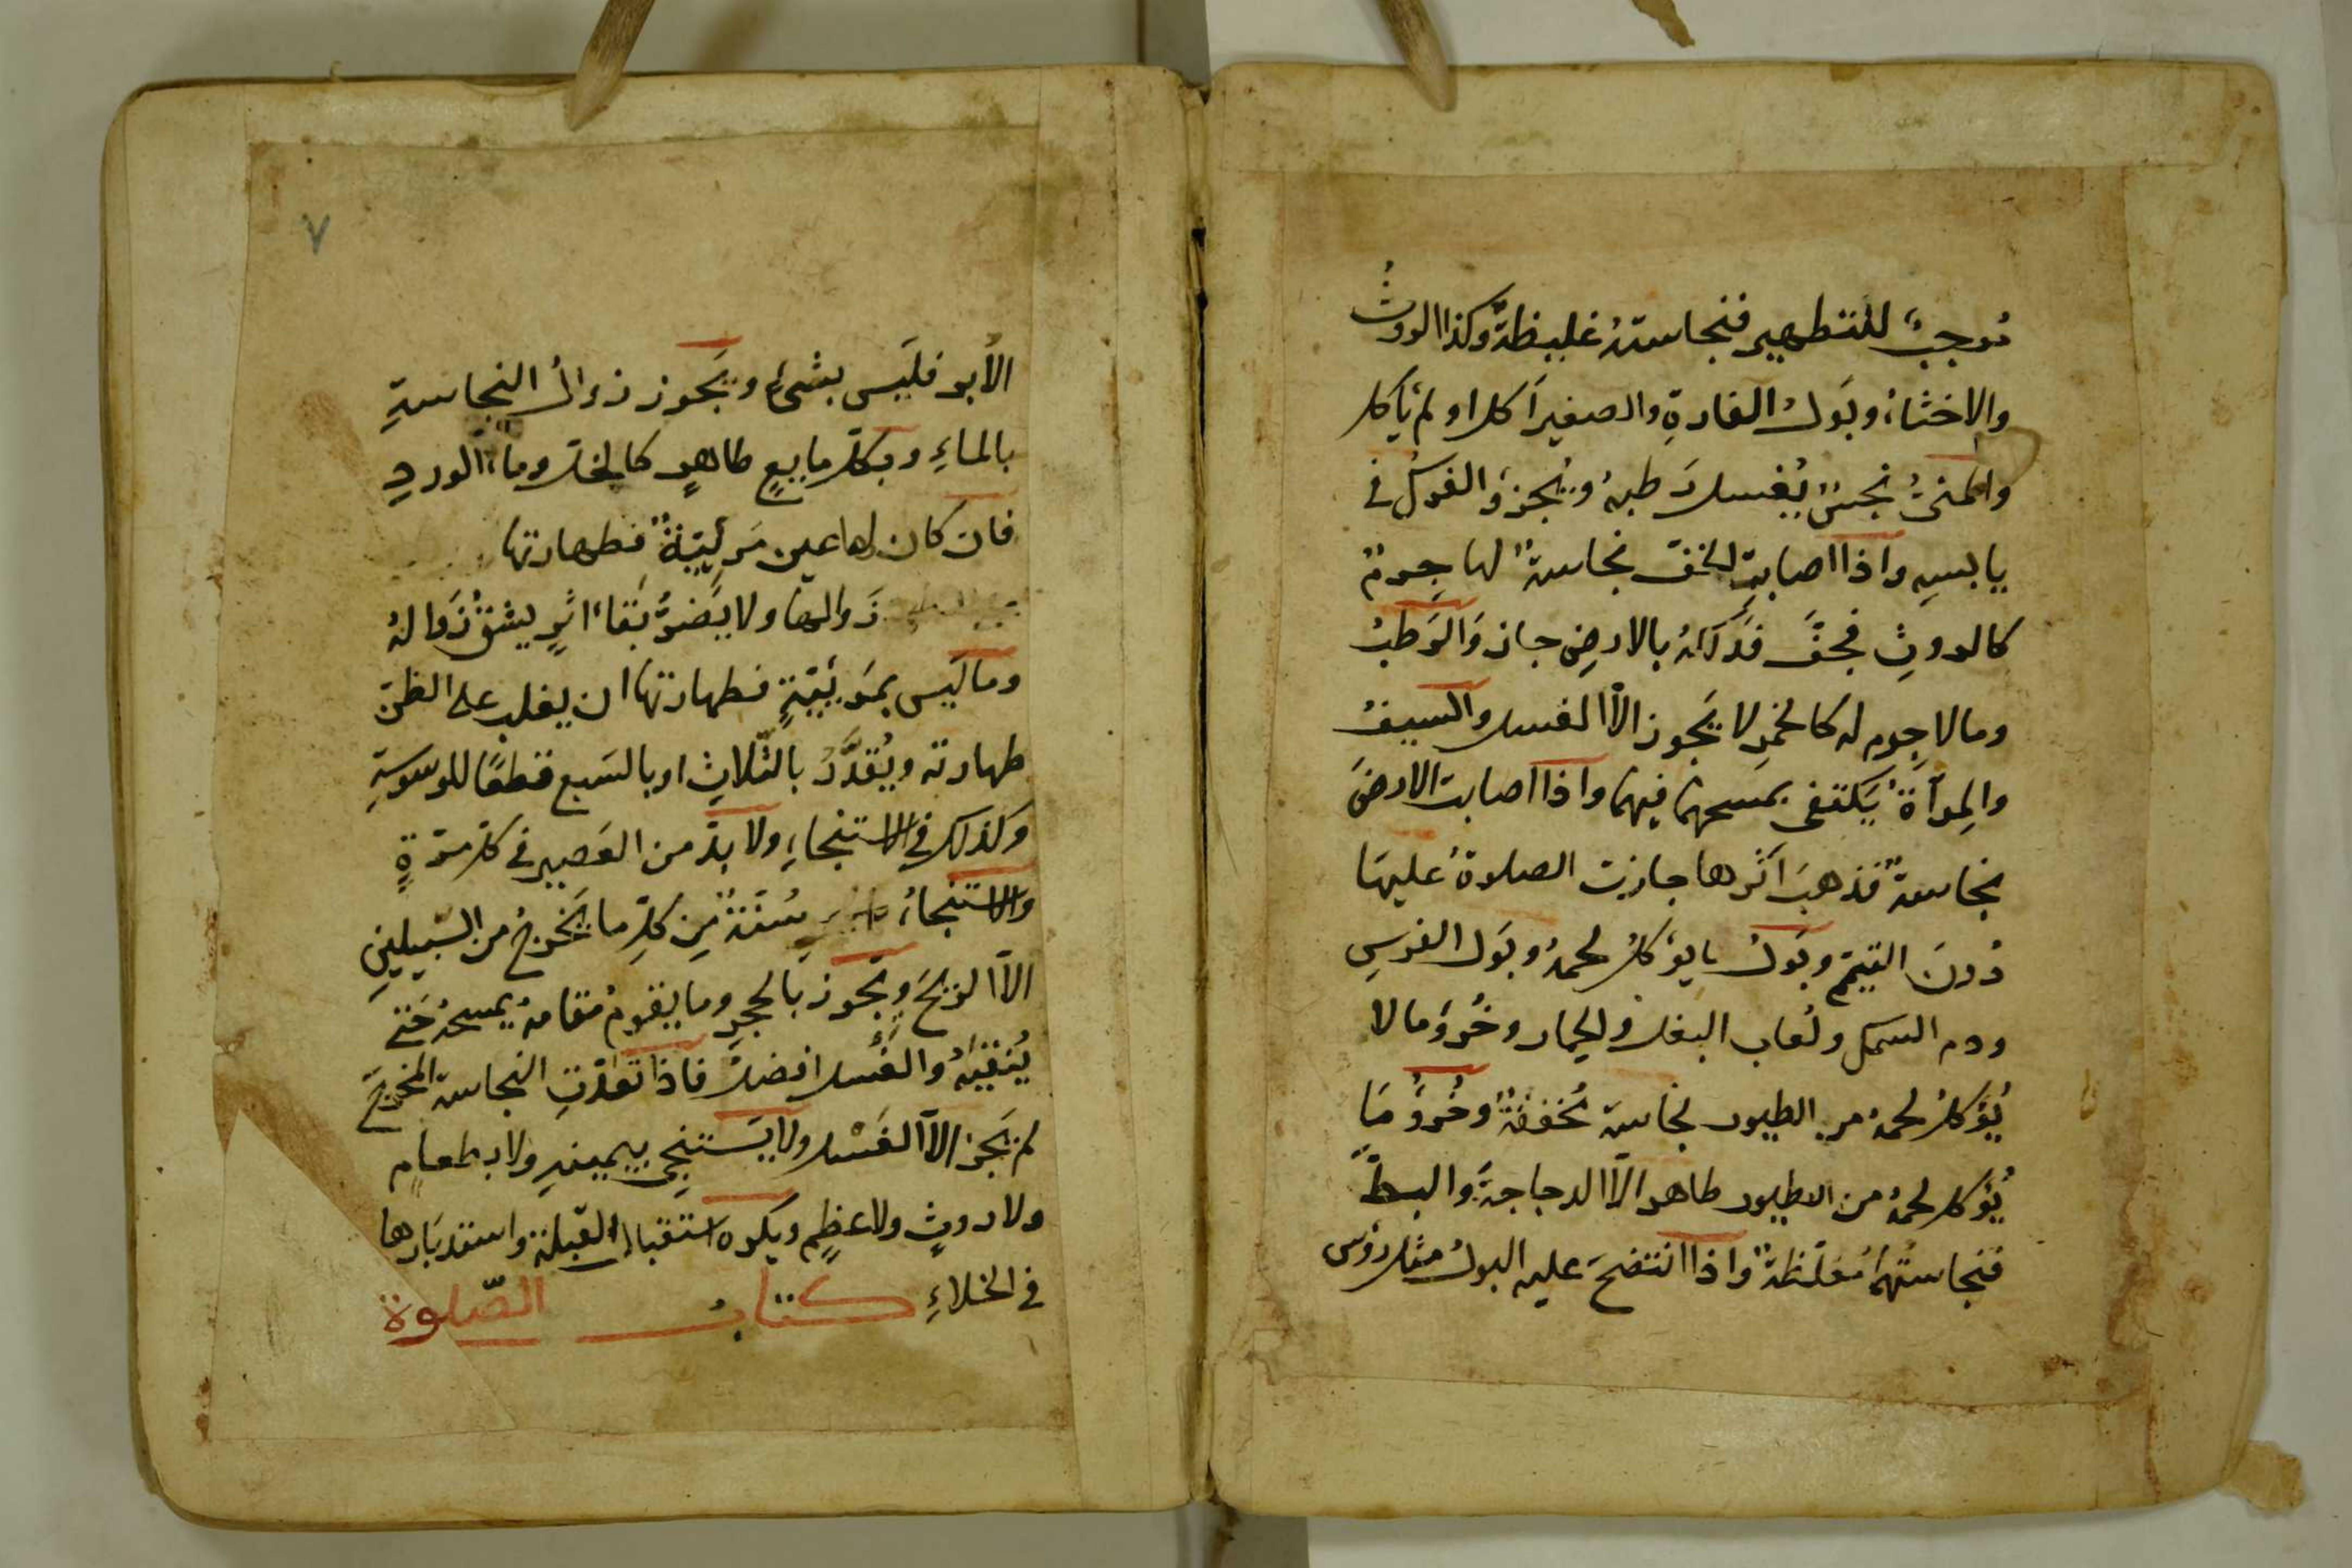 موجبٌ للتطهير فنجاسته غليظة وكذا الروثُ
والاخثاءُ وبَولُ الفارةِ والصغير اكل او لم يأكل
والمنىُّ نجسٌ يُغسل رَطبهُ ويُجزءُ الفركُ في
يابسِهِ واذا اصابتِ الخفّ نجاسةٌ لها جِرمٌ
كالروثِ فجفَّ فدَلَكَهُ بالارضِ جاز وَالرَطبُ
ومالا جِرم له كالخمرِ لا يَجوز الّا الغسل والسيفُ
والمِرآةُ يَكتفى بمسحهما فيهما واذا اصابت الارضَ
نجاسةٌ فذهبَ اثرها جازت الصلاةُ عليهَا
دُونَ التيمّم وبَولُ ما يؤكلُ لحمهُ وبَول الفرسِ
ودم السمك ولُعاب البغل والحمار وخُرؤُ مالا
يُؤكلُ لحمهُ من الطيور نجاسة مُخففةٌ وخُرؤُ مَا
يُؤكل لحمهُ من الطيور طاهر الّا الدجاجةَ والبطَّ
فنجاستُهما مُغلّظةٌ واذا انتضحَ عليه البولُ مثل رؤس
٧
الأبر فليَس بشئٍ ويَجوز زوالُ النجاسةِ
بالماءِ وبكلّ مايعٍ طاهرٍ كالخل وماء الوردِ
فان كان لها عين مَرئيّةٌ فطهارتها
زَوالها ولا يَضرُّ بَقاءُ اثرٍ يشقُّ زَوَالهُ
وما ليَس بمَرئيّةٍ فطهارتها ان يغلب على الظنّ
طهارته ويُقدَّرُ بالثّلاثِ او بالسَبع قطعًا للوسوسةِ
وكذلك في الاستنجاءِ ولا بدّ من العَصير في كلّ مرّةٍ
والاستنجاءُ سُنّةٌ مِن كلِّ ما يَخرجُ من السّبيلينِ
الّا الريحَ ويَجوز بالحجرِ وما يقومُ مَقامهُ يمسحُهُ حَتى
يُنقيَهُ والغَسل افضلُ فاذا تعدّتِ النجاسة المخرجَ
لم يَجز الّا الغَسْل ولا يَستنجِى بيمينهِ ولا بطعامٍ
ولا روثٍ ولا عظمٍ ويكره استقبالُ القبلة واستدبَارها
في الخلاءِ كتابُ الصّلوة